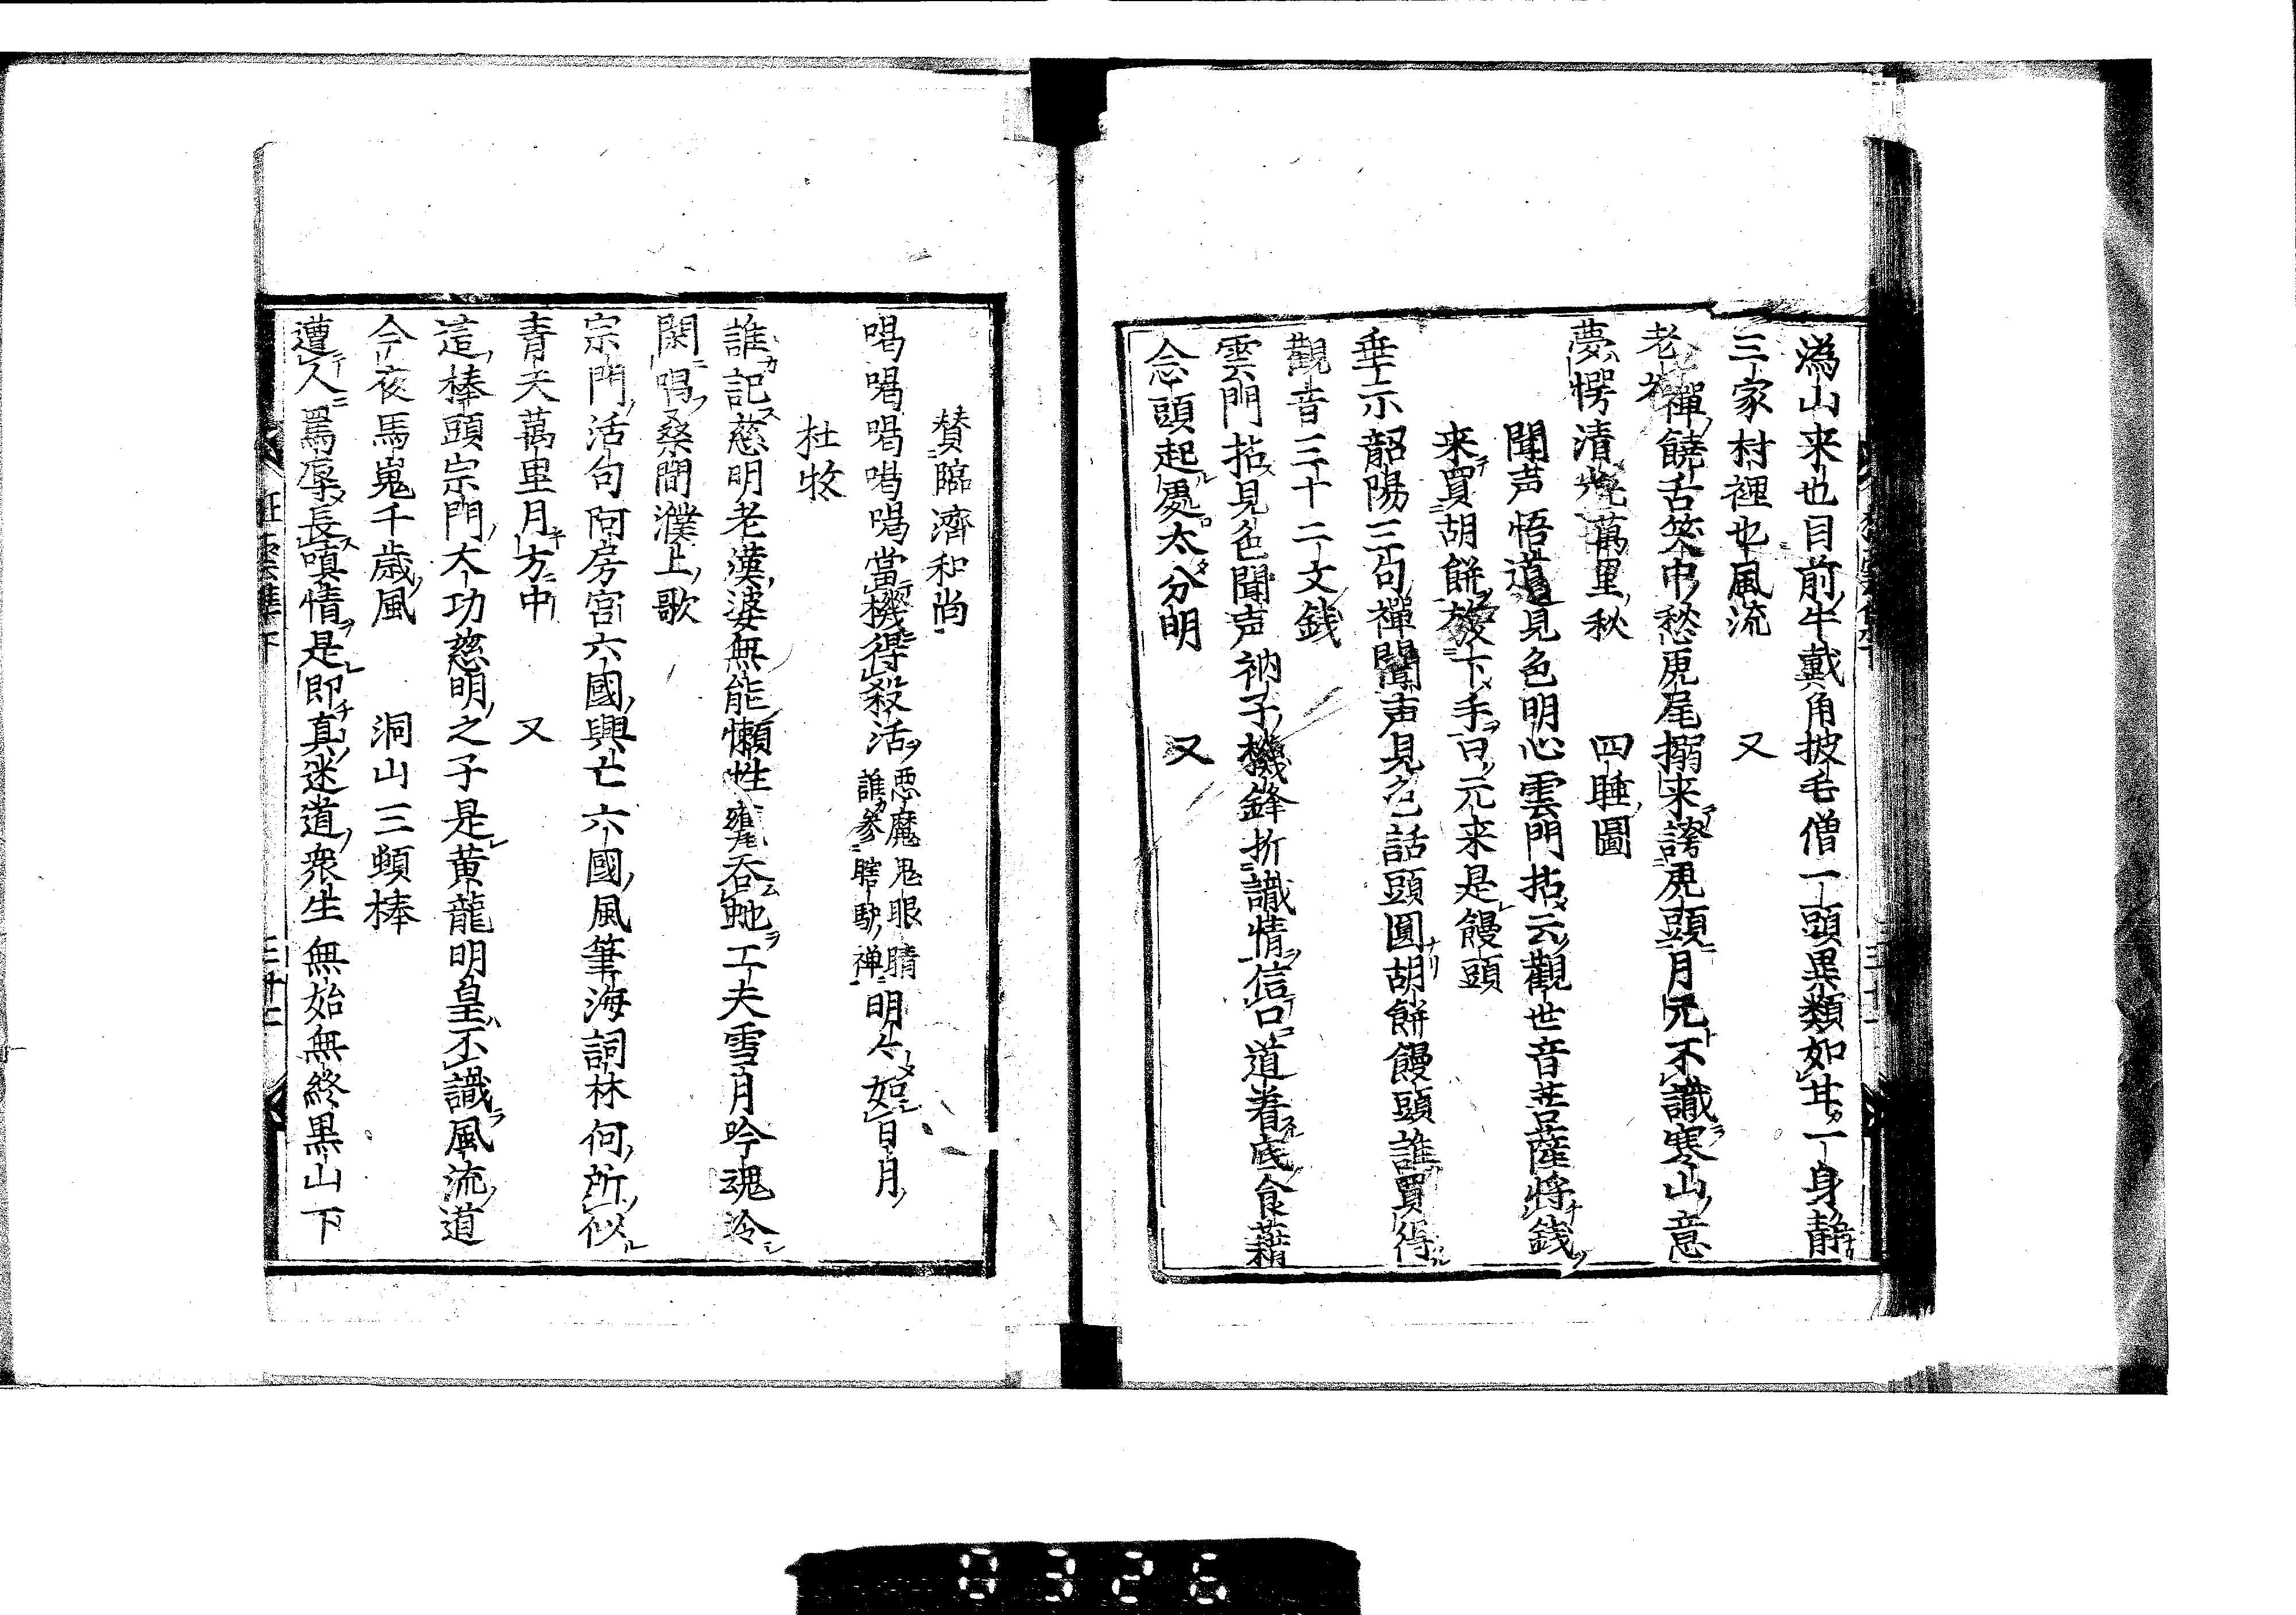 溈山来也目前牛戴角披毛僧一頭異類如甘一身静
三家村裡也風流　又
老禅饒舌笑中愁乕尾搦来誇乕頭月兀不識寒山意
夢愕清光萬里秋　四睡圖
聞声悟道見色明心雲門拈云觀世音菩薩将錢
来買胡餅放下手曰元来是饅頭
垂示韶陽三句禪聞声見色話頭圓胡餅饅頭誰買得
觀音三十二文錢
雲門拈見色聞声衲子機鋒折識情信口道着底食籍
念頭起處太分明　又
賛臨濟和尚
喝喝喝喝喝當機得殺活
悪魔鬼眼睛
誰参瞎驢禅
明々如日月
杜牧
誰記慈明老漢婆無能懶性甕呑虵工夫雪月吟魂冷
関唱桑間濮上歌
宗門活句阿房宮六國興亡六國風筆海詞林何所似
青天萬里月方中　又
這棒頭宗門大功慈明之子是黄龍明皇不識風流道
今夜馬嵬千歳風　洞山三頓棒
遭人罵辱長嗔情是即真迷道衆生無始無終黒山下
狂雲集下
三卅七
0326